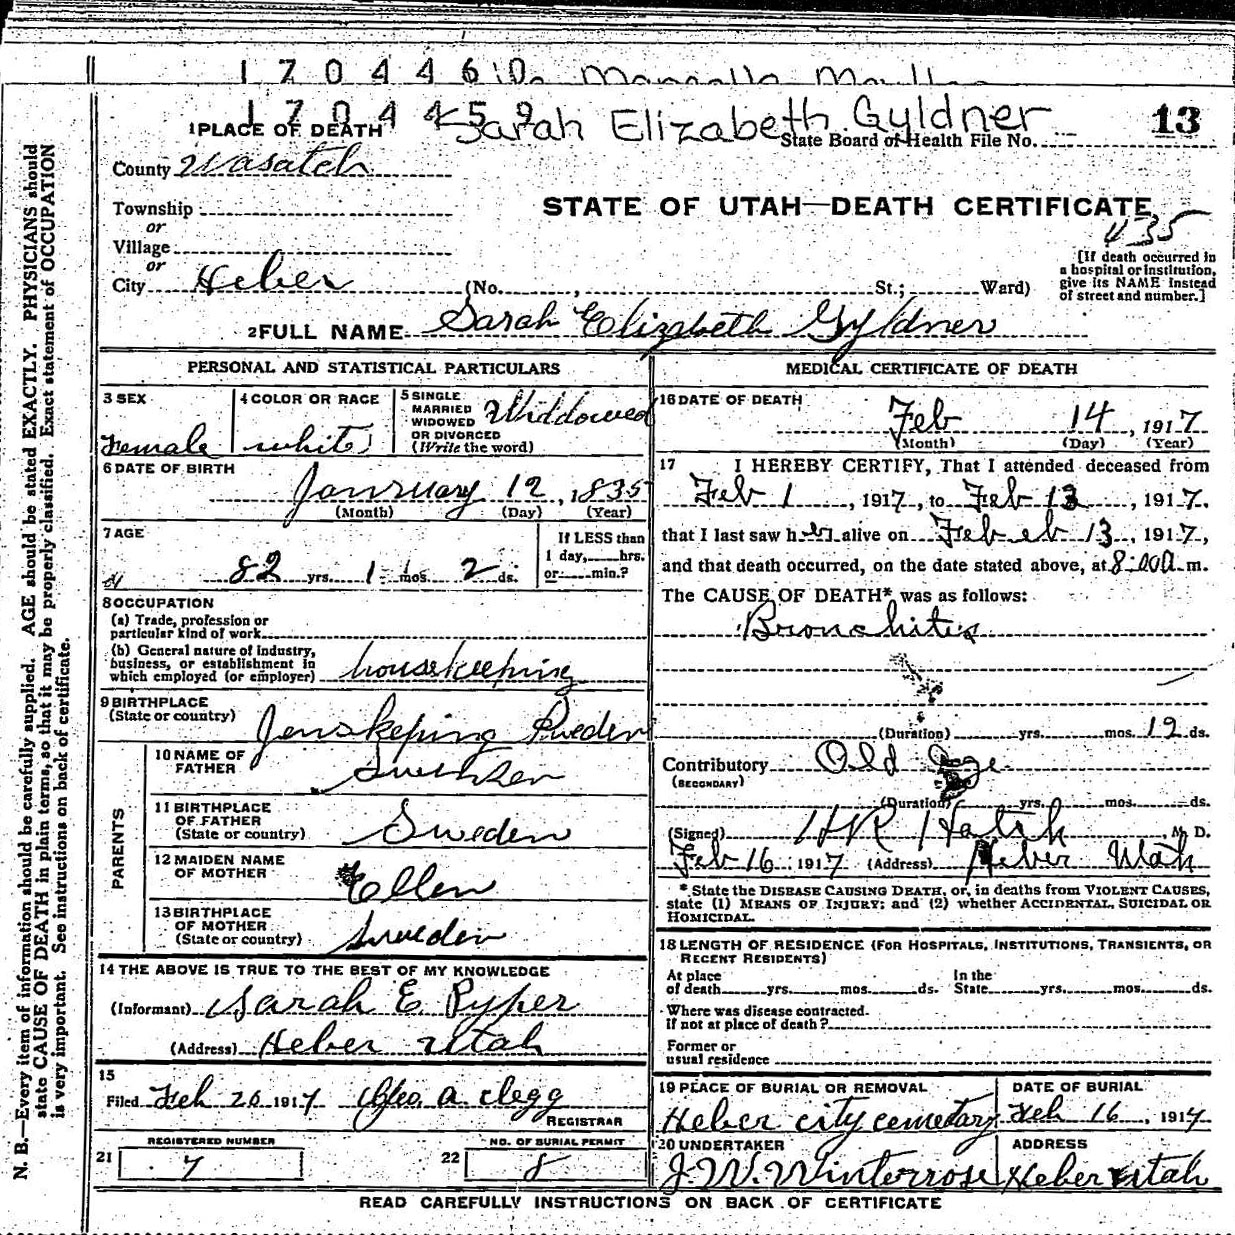 1 7 0 4 4 6 0
1 7 0 4 4 5 9 Sarah Elizabeth Gyldner 13
1 PLACE OF DEATH State Board of Health File No.
County Wasatch
Township STATE OF UTAH—DEATH CERTIFICATE
or 435
Village
or
City Heber (No. , St.; Ward)
[If death occurred in
a hospital or institution,
give its NAME instead
of street and number.]
2 FULL NAME Sarah Elizabeth Gyldner
PERSONAL AND STATISTICAL PARTICULARS
3 SEX
Female
4 COLOR OR RACE
white
5 SINGLE
MARRIED
WIDOWED
OR DIVORCED
(Write the word)
Widdowed
6 DATE OF BIRTH
January 12, 1835
(Month) (Day) (Year)
7 AGE
82 yrs. 1 mos. 2 ds.
If LESS than
1 day, hrs.
or min.?
8 OCCUPATION
(a) Trade, profession or
particular kind of work
(b) General nature of industry,
business, or establishment in
which employed (or employer) housekeeping
9 BIRTHPLACE
(State or country) Jenskeping Sweden
PARENTS
10 NAME OF
FATHER
11 BIRTHPLACE
OF FATHER
(State or country) Sweden
12 MAIDEN NAME
OF MOTHER Ellen
13 BIRTHPLACE
OF MOTHER
(State or country) Sweden
14 THE ABOVE IS TRUE TO THE BEST OF MY KNOWLEDGE
(Informant) Sarah E. Ryper
(Address) Heber Utah
15
Filed Feb 20 1917 Geo. A. Clegg
REGISTRAR
REGISTERED NUMBER
21 7
NO. OF BURIAL PERMIT
22 8
MEDICAL CERTIFICATE OF DEATH
16 DATE OF DEATH
Feb 14, 1917
(Month) (Day) (Year)
17 I HEREBY CERTIFY, That I attended deceased from
Feb 1, 1917, to Feb 13, 1917,
that I last saw her alive on Feb eb 13, 1917,
and that death occurred, on the date stated above, at 8-00 a m.
The CAUSE OF DEATH* was as follows:
Bronchites
(Duration) yrs. mos. 12 ds.
Contributory Old Age
(SECONDARY)
(Duration) yrs. mos. ds.
(Signed) H R Hatch, M. D.
Feb 16 1917 (Address) Heber Utah
* State the DISEASE CAUSING DEATH, or, in deaths from VIOLENT CAUSES,
state (1) MEANS OF INJURY; and (2) whether ACCIDENTAL, SUICIDAL OR
HOMICIDAL.
18 LENGTH OF RESIDENCE (FOR HOSPITALS, INSTITUTIONS, TRANSIENTS, OR
RECENT RESIDENTS)
At place
of death yrs. mos. ds.
In the
State yrs. mos. ds.
Where was disease contracted.
if not at place of death?
Former or
usual residence
19 PLACE OF BURIAL OR REMOVAL
Heber city cemetary
DATE OF BURIAL
Feb 16, 1917
20 UNDERTAKER
J. W. Winterrose
ADDRESS
Heber Utah
READ CAREFULLY INSTRUCTIONS ON BACK OF CERTIFICATE
N. B.—Every item of information should be carefully supplied. AGE should be stated EXACTLY. PHYSICIANS should
state CAUSE OF DEATH in plain terms, so that it may be properly classified. Exact statement of OCCUPATION
is very important. See instructions on back of certificate.